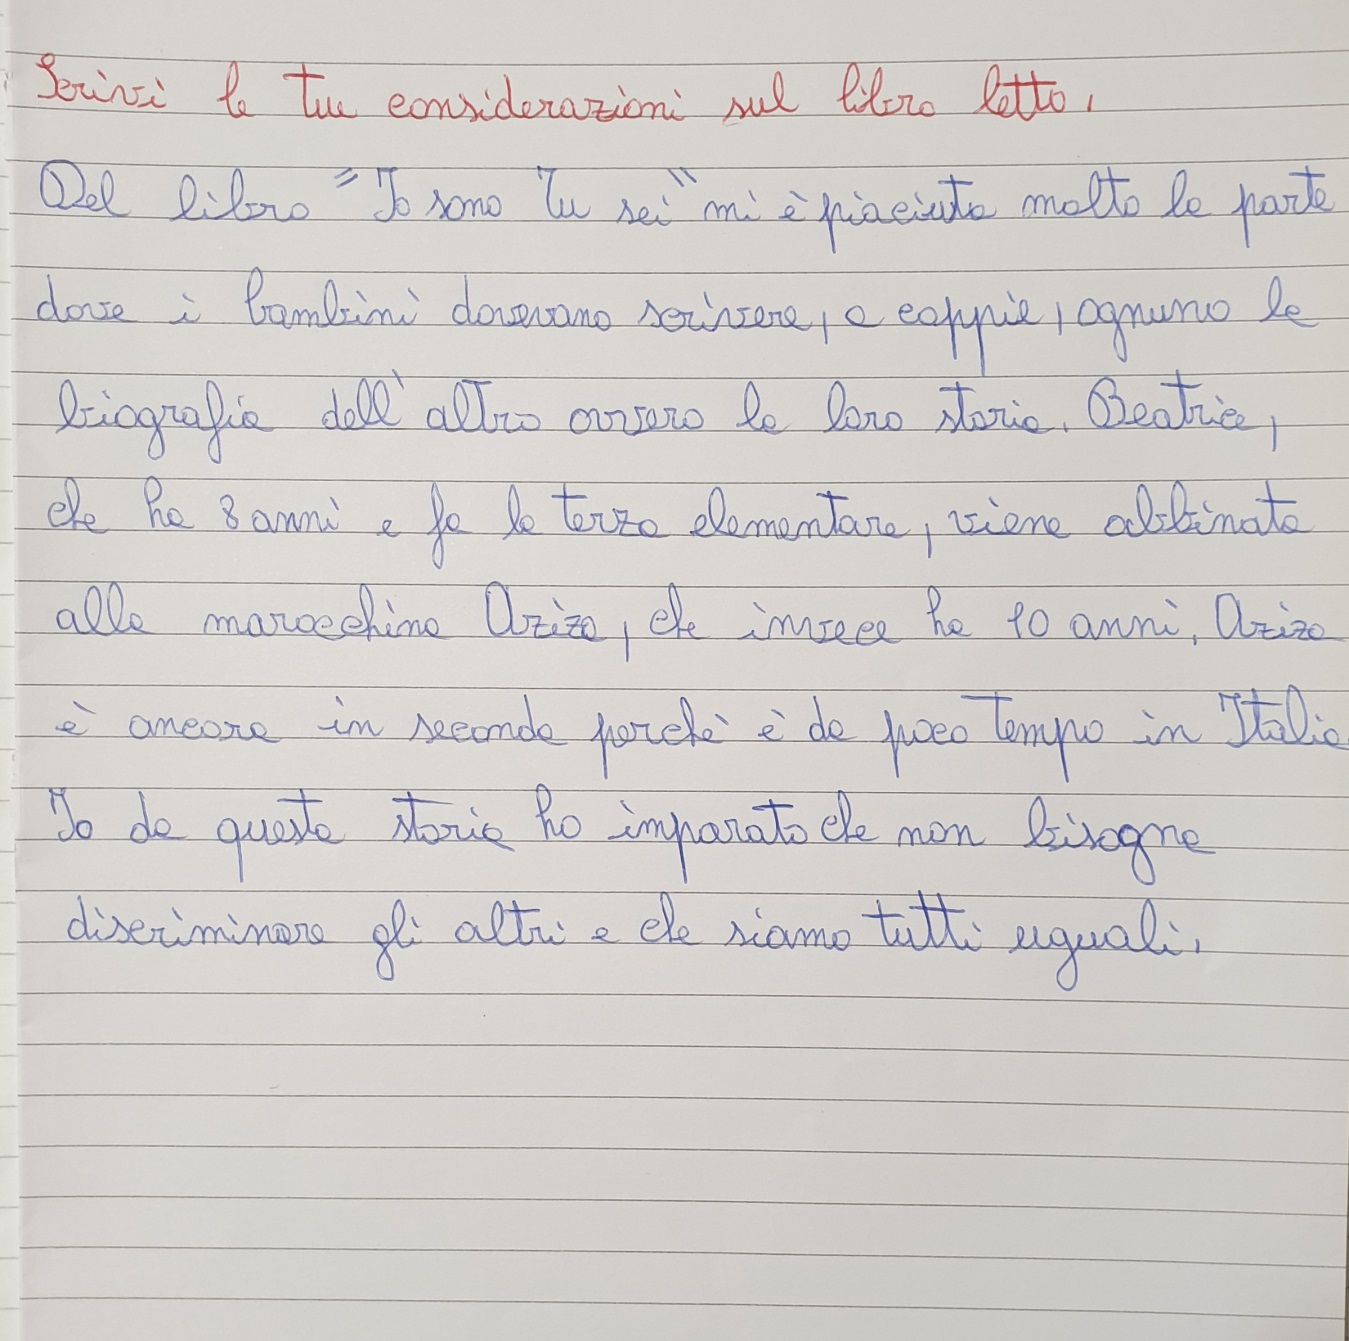 Scrivi le tue considerazioni sul libro letto.
Del libro "Io sono Tu sei" mi è piaciuta molto la parte
dove i bambini dovevano scrivere, a coppie, ognuno la
biografia dell'altro ovvero la loro storia. Beatrice,
che ha 8 anni e fa la terza elementare, viene abbinata
alla marocchina Aziza, che invece ha 10 anni. Aziza
è ancora in seconda perchè è da poco tempo in Italia
Io da questa storia ho imparato che non bisogna
discriminare gli altri e che siamo tutti uguali.